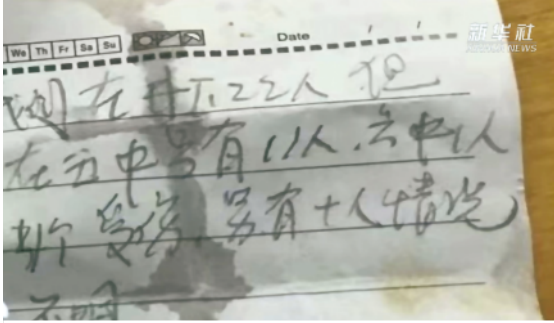 新华社
XINHUA NEWS
We Th Fr Sa Su Date
在井下22人 但
在五中 有11人、六中1人
受伤,另有十人情况
不明